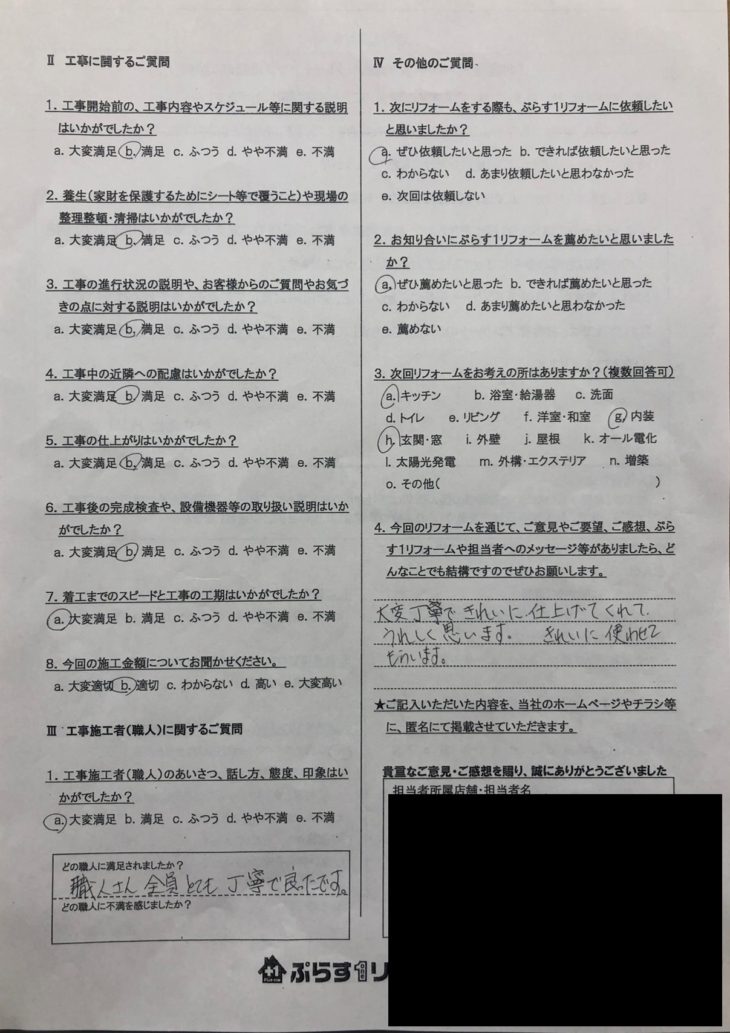 Ⅱ 工事に関するご質問
1. 工事開始前の、工事内容やスケジュール等に関する説明
はいかがでしたか?
a. 大変満足 b. 満足 c. ふつう d. やや不満 e. 不満
2. 養生(家財を保護するためにシート等で覆うこと)や現場の
整理整頓・清掃はいかがでしたか?
a. 大変満足 b. 満足 c. ふつう d. やや不満 e. 不満
3. 工事の進行状況の説明や、お客様からのご質問やお気づ
きの点に対する説明はいかがでしたか?
a. 大変満足 b. 満足 c. ふつう d. やや不満 e. 不満
4. 工事中の近隣への配慮はいかがでしたか?
a. 大変満足 b. 満足 c. ふつう d. やや不満 e. 不満
5. 工事の仕上がりはいかがでしたか?
a. 大変満足 b. 満足 c. ふつう d. やや不満 e. 不満
6. 工事後の完成検査や、設備機器等の取り扱い説明はいか
がでしたか?
a. 大変満足 b. 満足 c. ふつう d. やや不満 e. 不満
7. 着工までのスピードと工事の工期はいかがでしたか?
a. 大変満足 b. 満足 c. ふつう d. やや不満 e. 不満
8. 今回の施工金額についてお聞かせください。
a. 大変適切 b. 適切 c. わからない d. 高い e. 大変高い
Ⅲ 工事施工者(職人)に関するご質問
1. 工事施工者(職人)のあいさつ、話し方、態度、印象はい
かがでしたか?
a. 大変満足 b. 満足 c. ふつう d. やや不満 e. 不満
どの職人に満足されましたか?
職人さん 全員 とても 丁寧で良ったです。
どの職人に不満を感じましたか?
Ⅳ その他のご質問
1. 次にリフォームをする際も、ぷらす1リフォームに依頼したい
と思いましたか?
a. ぜひ依頼したいと思った b. できれば依頼したいと思った
c. わからない d. あまり依頼したいと思わなかった
e. 次回は依頼しない
2. お知り合いにぷらす1リフォームを薦めたいと思いました
か?
a. ぜひ薦めたいと思った b. できれば薦めたいと思った
c. わからない d. あまり薦めたいと思わなかった
e. 薦めない
3. 次回リフォームをお考えの所はありますか?(複数回答可)
a. キッチン b. 浴室・給湯器 c. 洗面
d. トイレ e. リビング f. 洋室・和室 g. 内装
h. 玄関・窓 i. 外壁 j. 屋根 k. オール電化
l. 太陽光発電 m. 外構・エクステリア n. 増築
o. その他( )
4. 今回のリフォームを通じて、ご意見やご要望、ご感想、ぷら
す1リフォームや担当者へのメッセージ等がありましたら、ど
んなことでも結構ですのでぜひお願いします。
大変丁寧で きれいに 仕上げてくれて
うれしく思います。 きれいに 使わせて
もらいます。
★ご記入いただいた内容を、当社のホームページやチラシ等
に、匿名にて掲載させていただきます。
貴重なご意見・ご感想を賜り、誠にありがとうございました
担当者所属店舗・担当者名
+1
ぷらす1リ